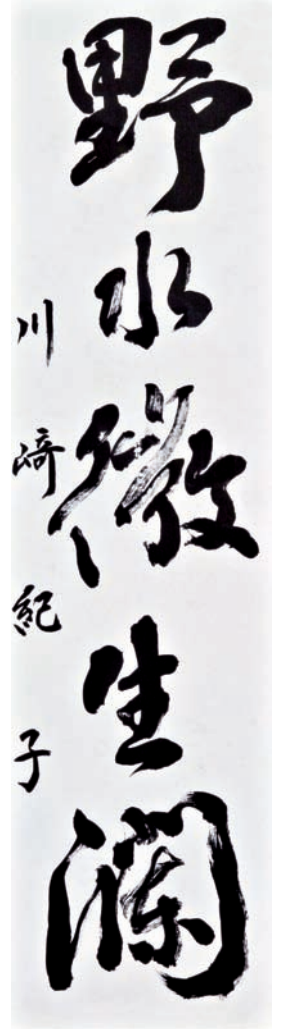 野水微生瀾
川﨑紀子